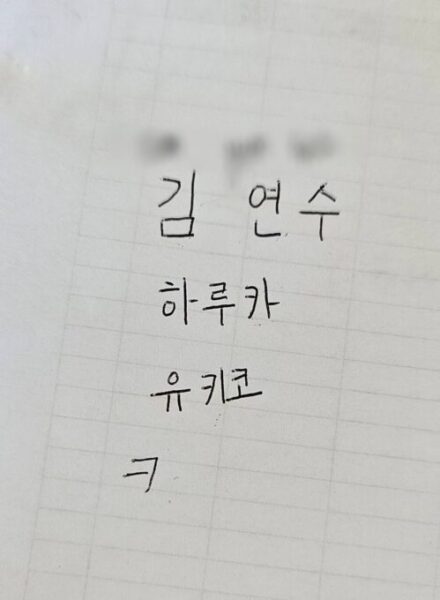 김 연수
하루카
유키코
ㅋ